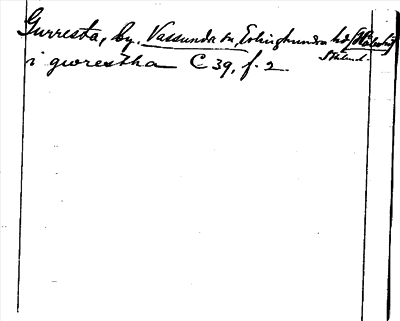 Gurresta, by. Vassunda sn, Erlinghundra hd,
Sthlmsl.
i gwrestha C 39, f. 2.